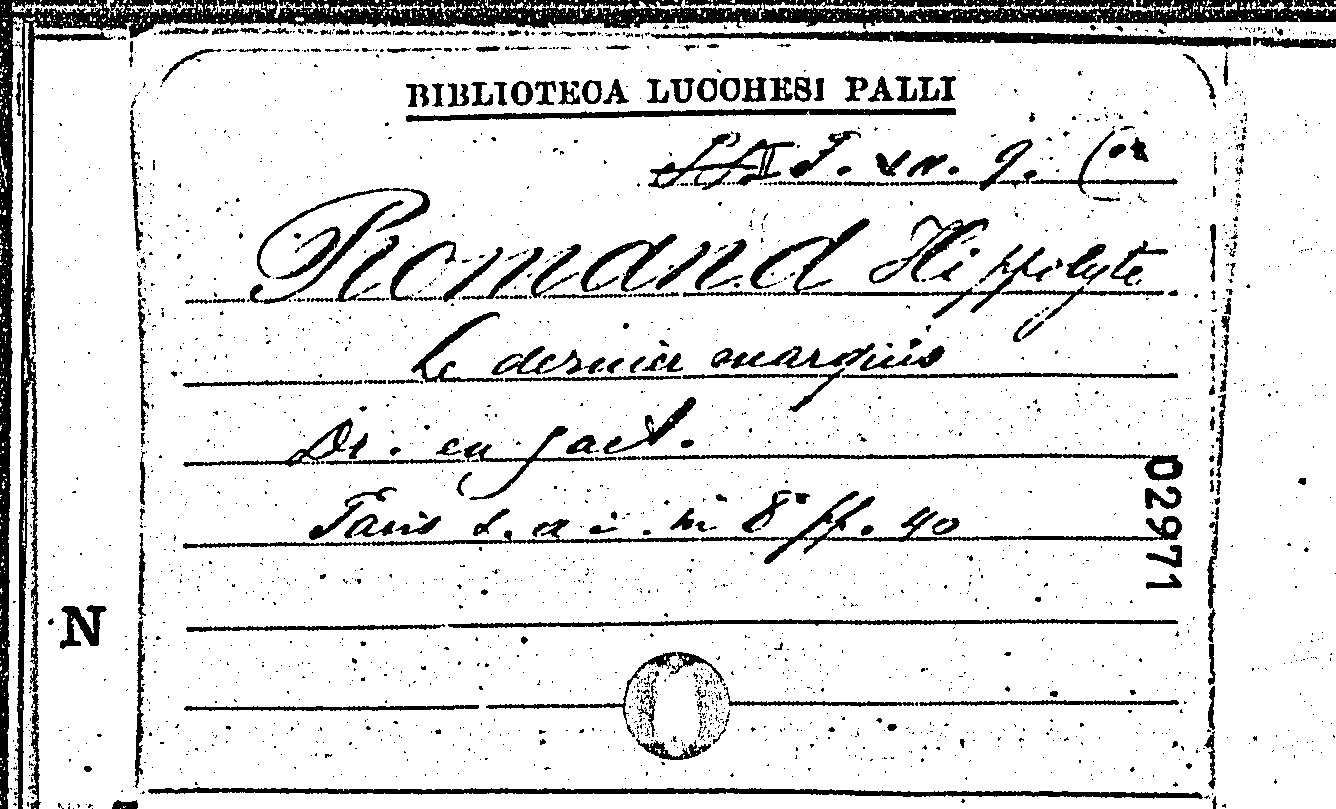 BIBLIOTECA LUCCHESI PALLI
F. XX. 9. (02
Romand Hippolyte
Le dernier marquis
Dr. en 5 act.
Paris s. a. in 8° pp. 40
02971
N